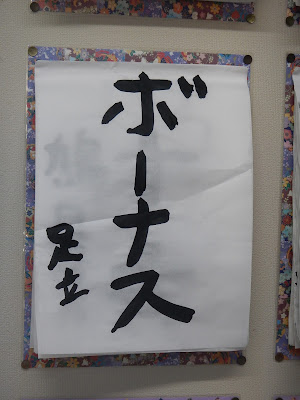 ボーナス
足立